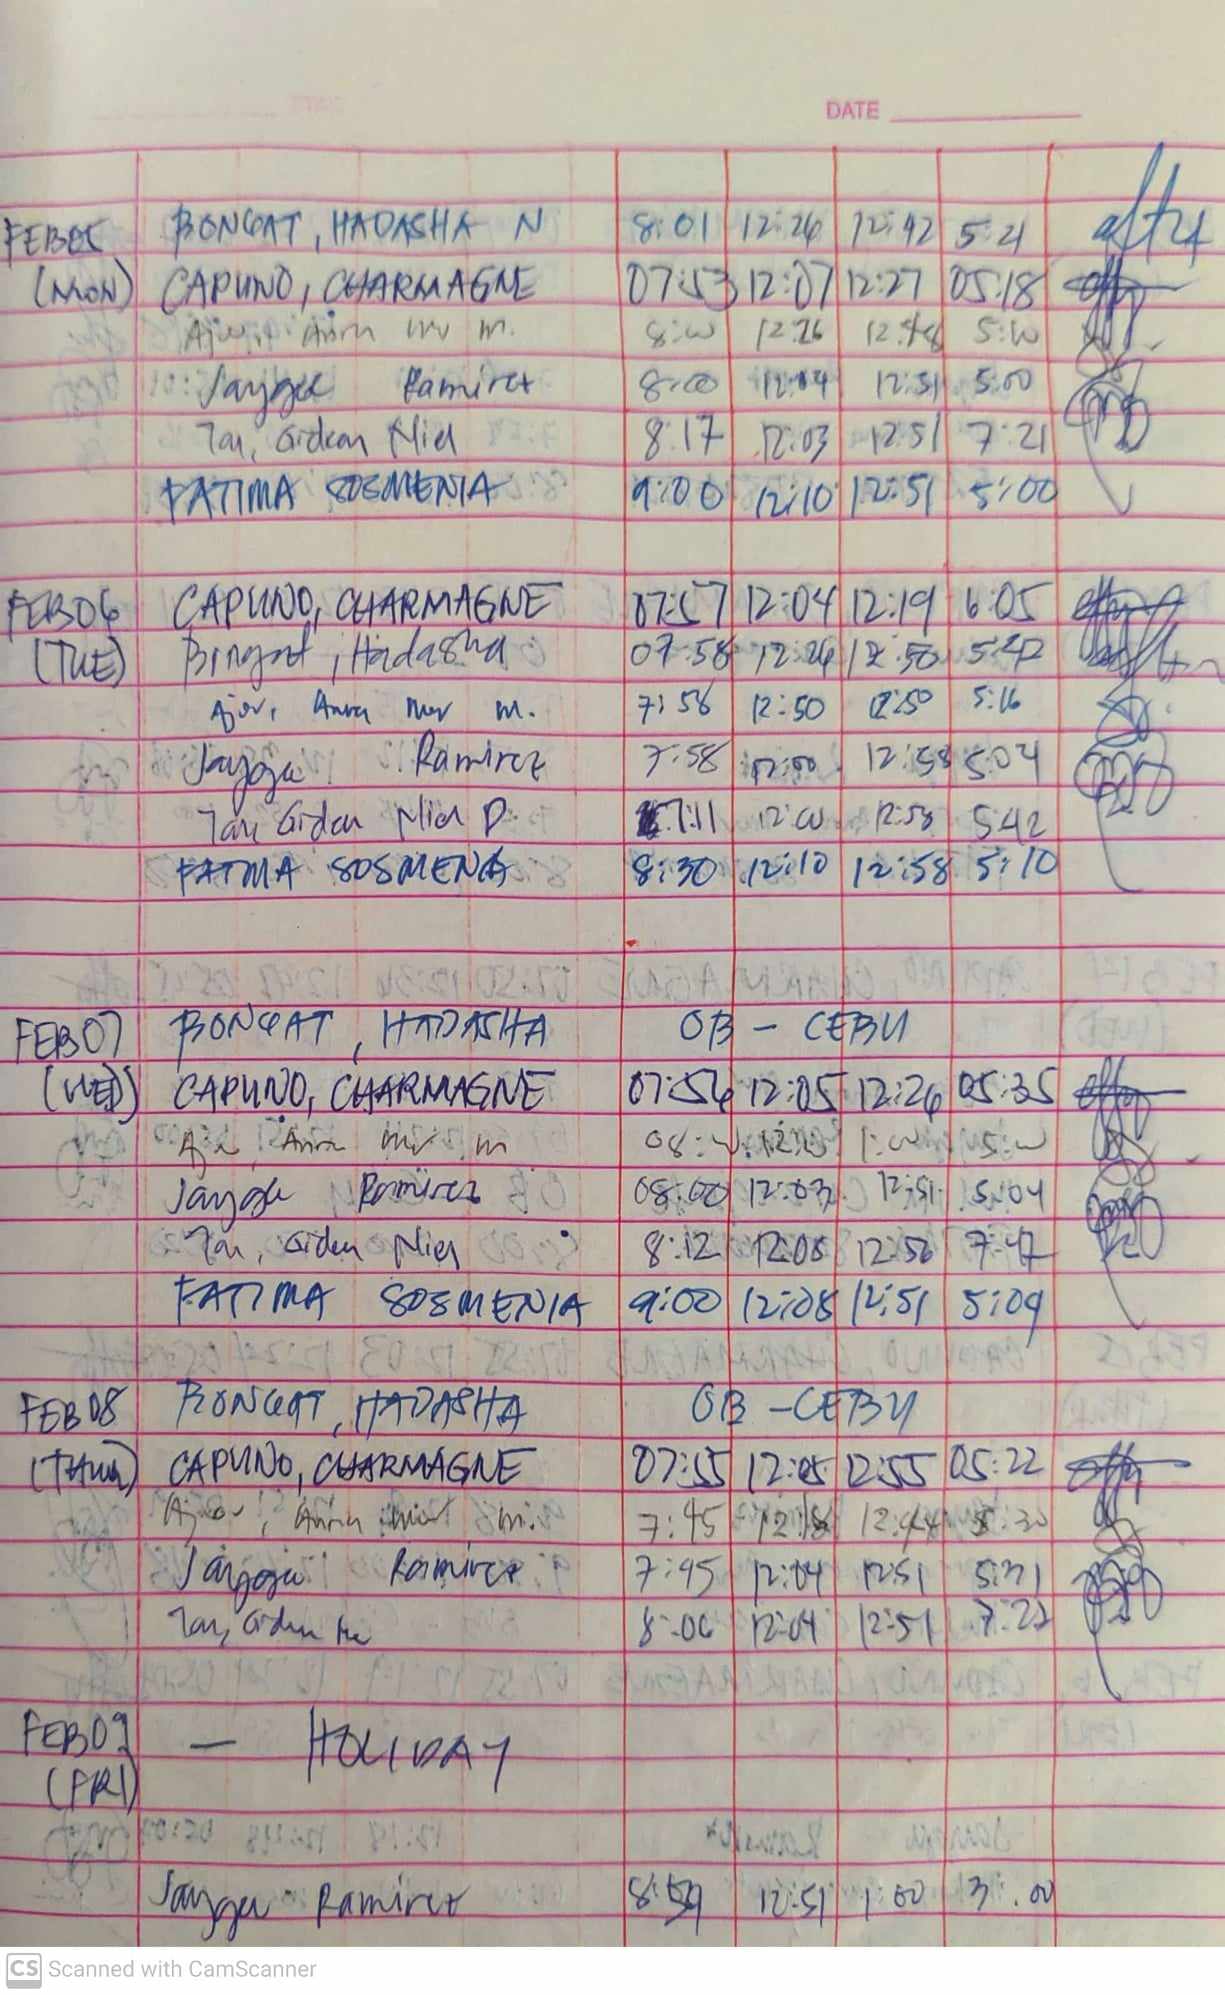 DATE
FEB 05 BONGAT, HADASHA N 8:01 12:26 12:42 5:21
(MON) CAPUNO, CHARMAGNE 07:53 12:07 12:27 05:18
Anna m. 12:26 12:48
Jaygee Ramirez 8:00 12:04 12:51 5:00
Tan, Gideon Niel 8:17 12:03 12:51 7:21
FATIMA SOSMENIA 9:00 12:10 12:51 5:00
FEB 06 CAPUNO, CHARMAGNE 07:57 12:04 12:19 6:05
(TUE) Bongat, Hadasha 07:58 12:26 12:50 5:42
Anna m. 7:58 12:50 12:50 5:16
Jaygee Ramirez 7:58 12:00 12:58 5:04
Tan, Gideon Niel D. 7:11 12:00 12:58 5:42
FATIMA SOSMENA 8:30 12:10 12:58 5:10
FEB 07 BONGAT, HADASHA OB - CEBU
(WED) CAPUNO, CHARMAGNE 07:56 12:05 12:26 05:35
Anna m
Jaygee Ramirez 08:00 12:03 12:51 5:04
Tan, Gideon Niel 8:12 12:08 12:56 7:47
FATIMA SOSMENIA 9:00 12:08 12:51 5:09
FEB 08 BONGAT, HADASHA OB - CEBU
CAPUNO, CHARMAGNE 07:55 12:05 12:55 05:22
Anna m. 7:45 12:44
Jaygee Ramirez 7:45 12:04 12:51
Tan, Gideon 8:06 12:04 12:51
FEB 09 — HOLIDAY
(FRI)
Jaygee Ramirez 8:59 12:51 1:00 3:00
CS Scanned with CamScanner